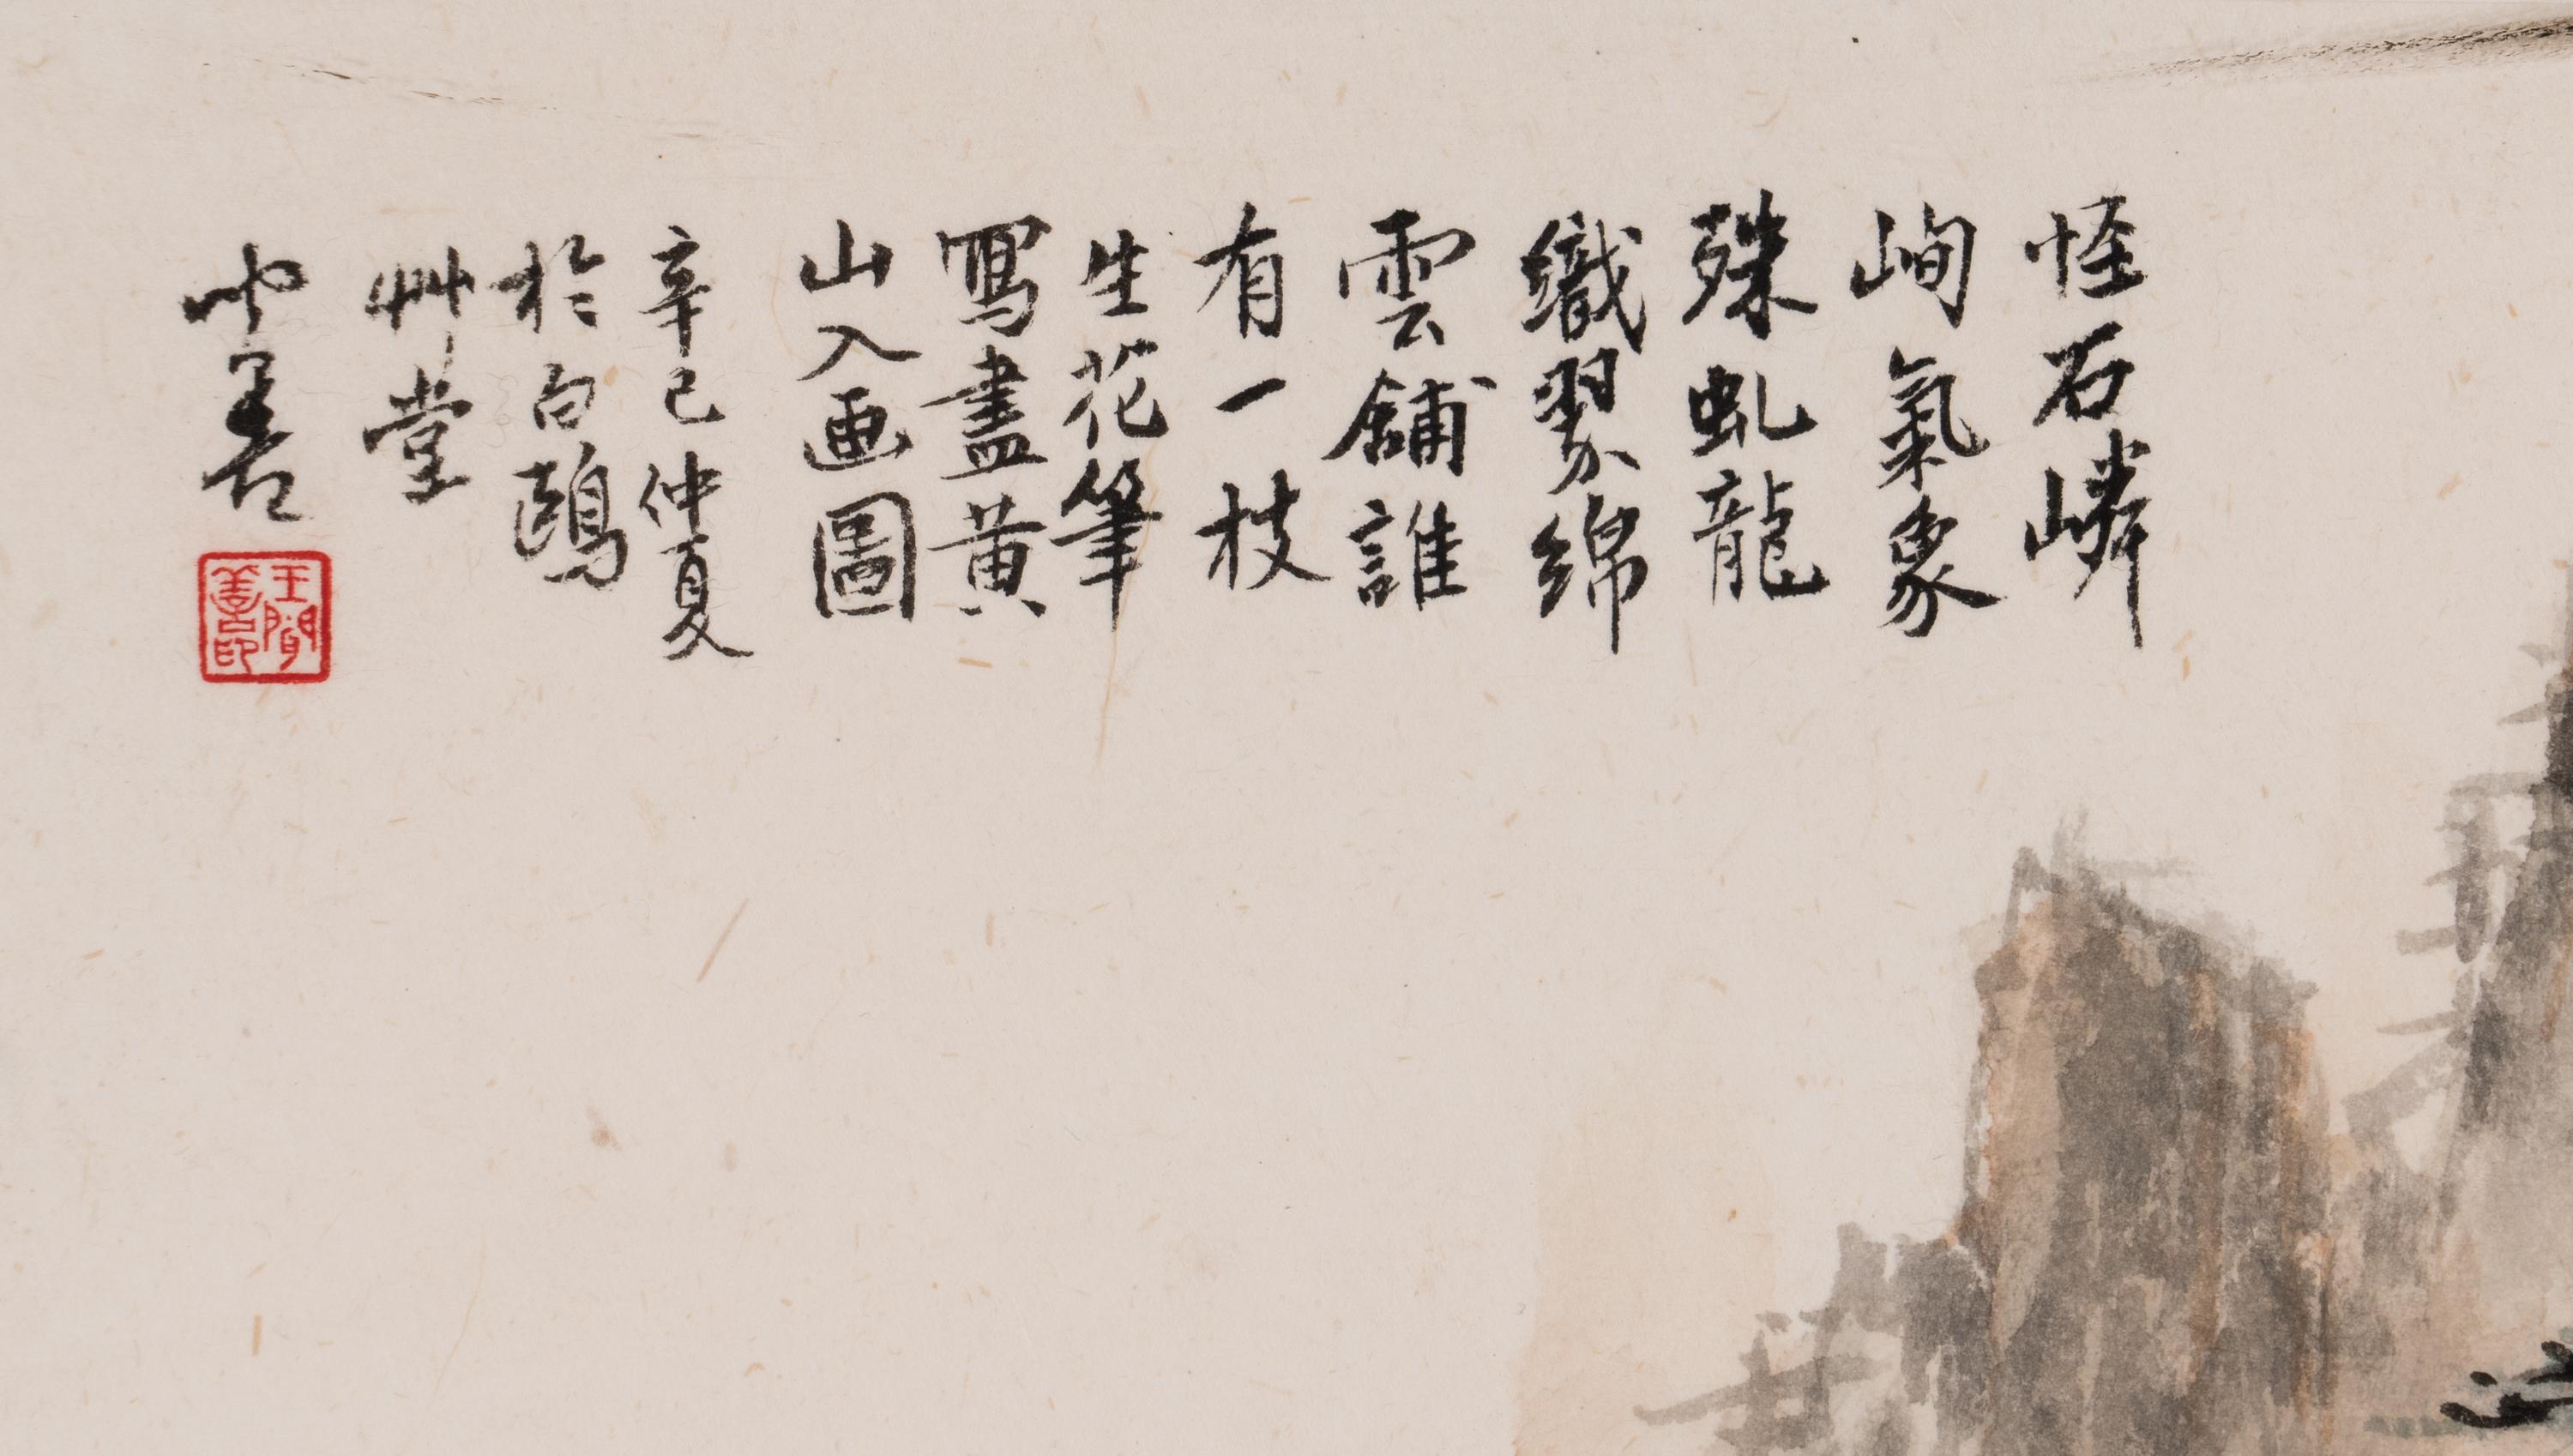 怪石嶙
峋氣象
殊虬龍
織翠綿
雲鋪誰
有一枝
生花筆
寫盡黄
山入画圖
辛巳仲夏
於白鷗
艸堂
聞善
王聞善印